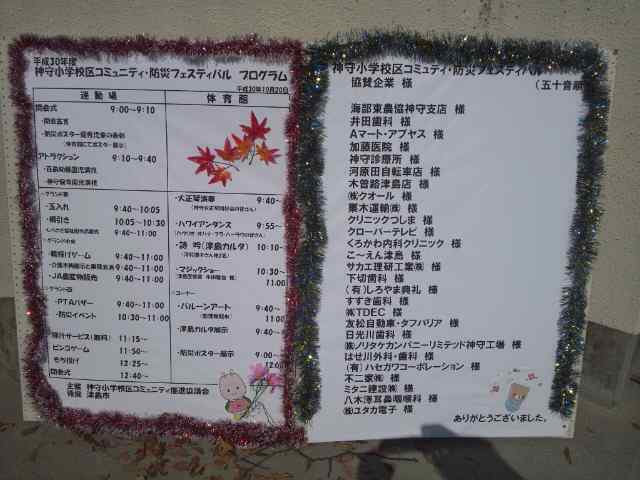 平成30年度
神守小学校区コミュニティ・防災フェスティバル プログラム
平成30年10月20日
運動場
体育館
開会式 9:00〜9:10
・開会宣言
・防災ポスター優秀児童の表彰
アトラクション 9:10〜9:40
・玉入れ 9:40〜10:05
・綱引き 10:05〜10:30
9:40〜11:00
・輪投げゲーム 9:40〜11:00
9:40〜11:00
・JA農産物販売 9:40〜11:00
・PTAバザー 9:40〜11:00
・防災イベント 10:30〜11:00
サービス(無料) 11:15〜
ビンゴゲーム 11:50〜
もち投げ 12:25〜
閉会式 12:40〜
・大正琴演奏 9:40〜
・ハワイアンダンス 9:55〜
・詩吟(津島カルタ) 10:10〜
・マジックショー 10:30〜
11:00
・コーナー
・バルーンアート 9:40〜
11:00
・津島カルタ展示 9:00〜
・防災ポスター展示 9:00〜
主催 神守小学校区コミュニティ推進協議会
後援 津島市
神守小学校区コミュティ・防災フェスティバル
協賛企業 様
(五十音順
海部東農協神守支店 様
井田歯科 様
Aマート・アブヤス 様
加藤医院 様
神守診療所 様
河原田自転車店 様
木曽路津島店 様
㈱クオール 様
栗木運輸㈱ 様
クリニックつしま 様
クローバーテレビ 様
くろかわ内科クリニック 様
こ〜えん津島 様
サカエ理研工業㈱ 様
下切歯科 様
(有)しろやま典礼 様
すずき歯科 様
㈱TDEC 様
友松自動車・タフバリア 様
日光川歯科 様
㈱ノリタケカンパニーリミテッド神守工場 様
はせ川外科・歯科 様
(有)ハセガワコーポレーション 様
不二家㈱ 様
ミタニ建設㈱ 様
八木澤耳鼻咽喉科 様
㈱ユタカ電子 様
ありがとうございました。